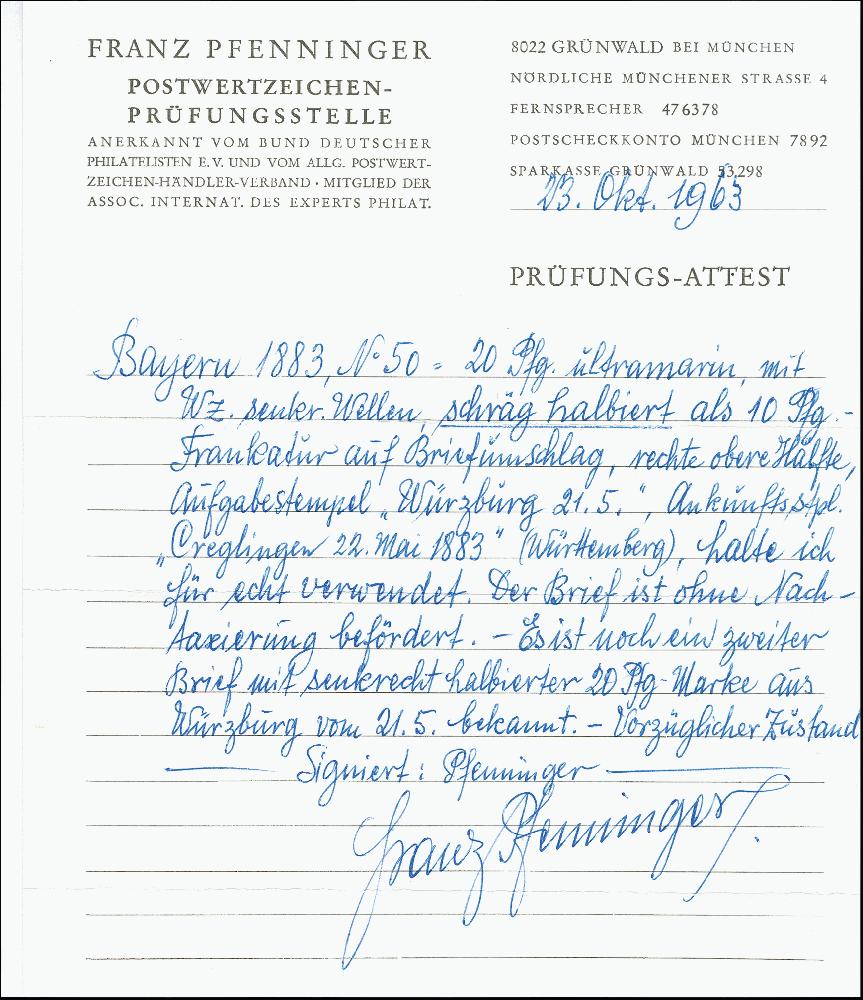 FRANZ PFENNINGER
POSTWERTZEICHEN-
PRÜFUNGSSTELLE
ANERKANNT VOM BUND DEUTSCHER
PHILATELISTEN E.V. UND VOM ALLG. POSTWERT-
ZEICHEN-HÄNDLER-VERBAND · MITGLIED DER
ASSOC. INTERNAT. DES EXPERTS PHILAT.
8022 GRÜNWALD BEI MÜNCHEN
NÖRDLICHE MÜNCHENER STRASSE 4
FERNSPRECHER 476378
POSTSCHECKKONTO MÜNCHEN 7892
SPARKASSE GRÜNWALD 53298
23. Okt. 1963
PRÜFUNGS-ATTEST
Bayern 1883, No 50 = 20 Pfg. ultramarin, mit
Wz. senkr. Wellen, schräg halbiert als 10 Pfg.-
Frankatur auf Briefumschlag, rechte obere Hälfte,
Aufgabestempel „Würzburg 21.5.", Ankunftsstpl.
„Creglingen 22. Mai 1883" (Württemberg), halte ich
für echt verwendet. Der Brief ist ohne Nach-
taxierung befördert. - Es ist noch ein zweiter
Brief mit senkrecht halbierter 20 Pfg-Marke aus
Würzburg vom 21.5. bekannt. - Vorzüglicher Zustand
Signiert : Pfenninger
Franz Pfenninger.